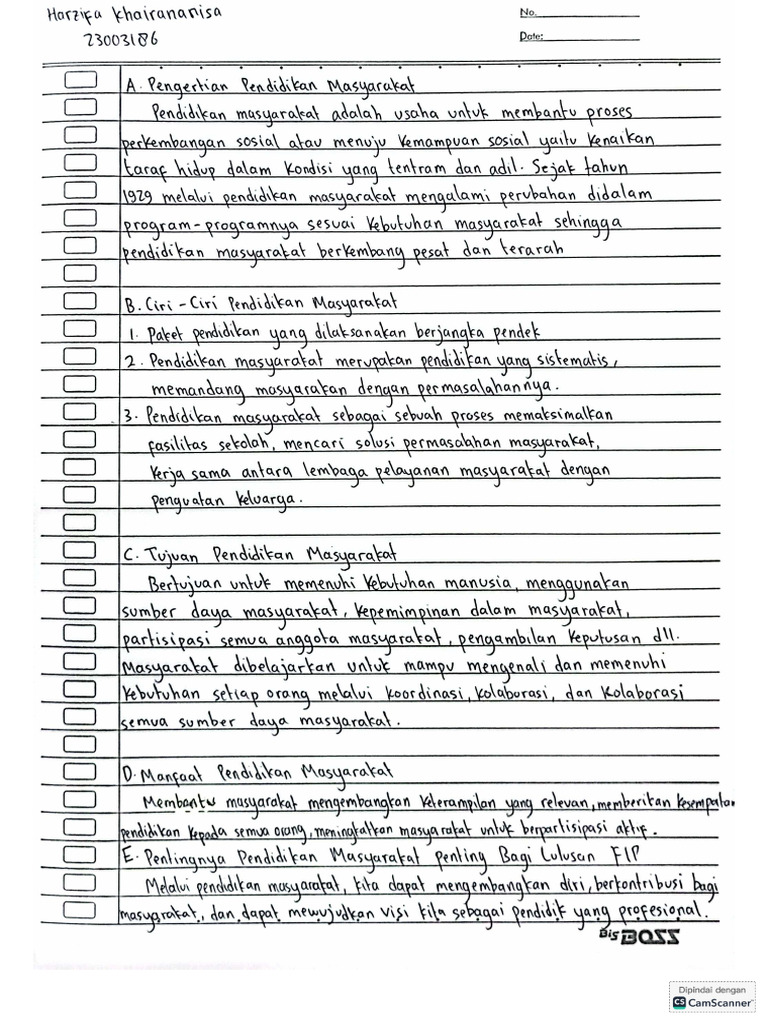 Harzifa Khairananisa
23003186
No.
Date:
A. Pengertian Pendidikan Masyarakat
Pendidikan masyarakat adalah usaha untuk membantu proses
perkembangan sosial atau menuju kemampuan sosial yaitu kenaikan
taraf hidup dalam kondisi yang tentram dan adil. Sejak tahun
1929 melalui pendidikan masyarakat mengalami perubahan didalam
program-programnya sesuai kebutuhan masyarakat sehingga
pendidikan masyarakat berkembang pesat dan terarah
B. Ciri-Ciri Pendidikan Masyarakat
1. Paket pendidikan yang dilaksanakan berjangka pendek
2. Pendidikan masyarakat merupakan pendidikan yang sistematis,
memandang masyarakan dengan permasalahannya.
3. Pendidikan masyarakat sebagai sebuah proses memaksimalkan
fasilitas sekolah, mencari solusi permasalahan masyarakat,
kerja sama antara lembaga pelayanan masyarakat dengan
penguatan keluarga.
C. Tujuan Pendidikan Masyarakat
Bertujuan untuk memenuhi kebutuhan manusia, menggunakan
sumber daya masyarakat, kepemimpinan dalam masyarakat,
partisipasi semua anggota masyarakat, pengambilan keputusan dll.
Masyarakat dibelajarkan untuk mampu mengenali dan memenuhi
kebutuhan setiap orang melalui koordinasi, kolaborasi, dan kolaborasi
semua sumber daya masyarakat.
D. Manfaat Pendidikan Masyarakat
Membantu masyarakat mengembangkan keterampilan yang relevan, memberikan kesempatan
pendidikan kepada semua orang, meningkatkan masyarakat untuk berpartisipasi aktif.
E. Pentingnya Pendidikan Masyarakat penting Bagi Lulusan FIP
Melalui pendidikan masyarakat, kita dapat mengembangkan diri, berkontribusi bagi
masyarakat, dan dapat mewujudkan visi kita sebagai pendidik yang profesional.
Bis BOSS
Dipindai dengan
CS CamScanner